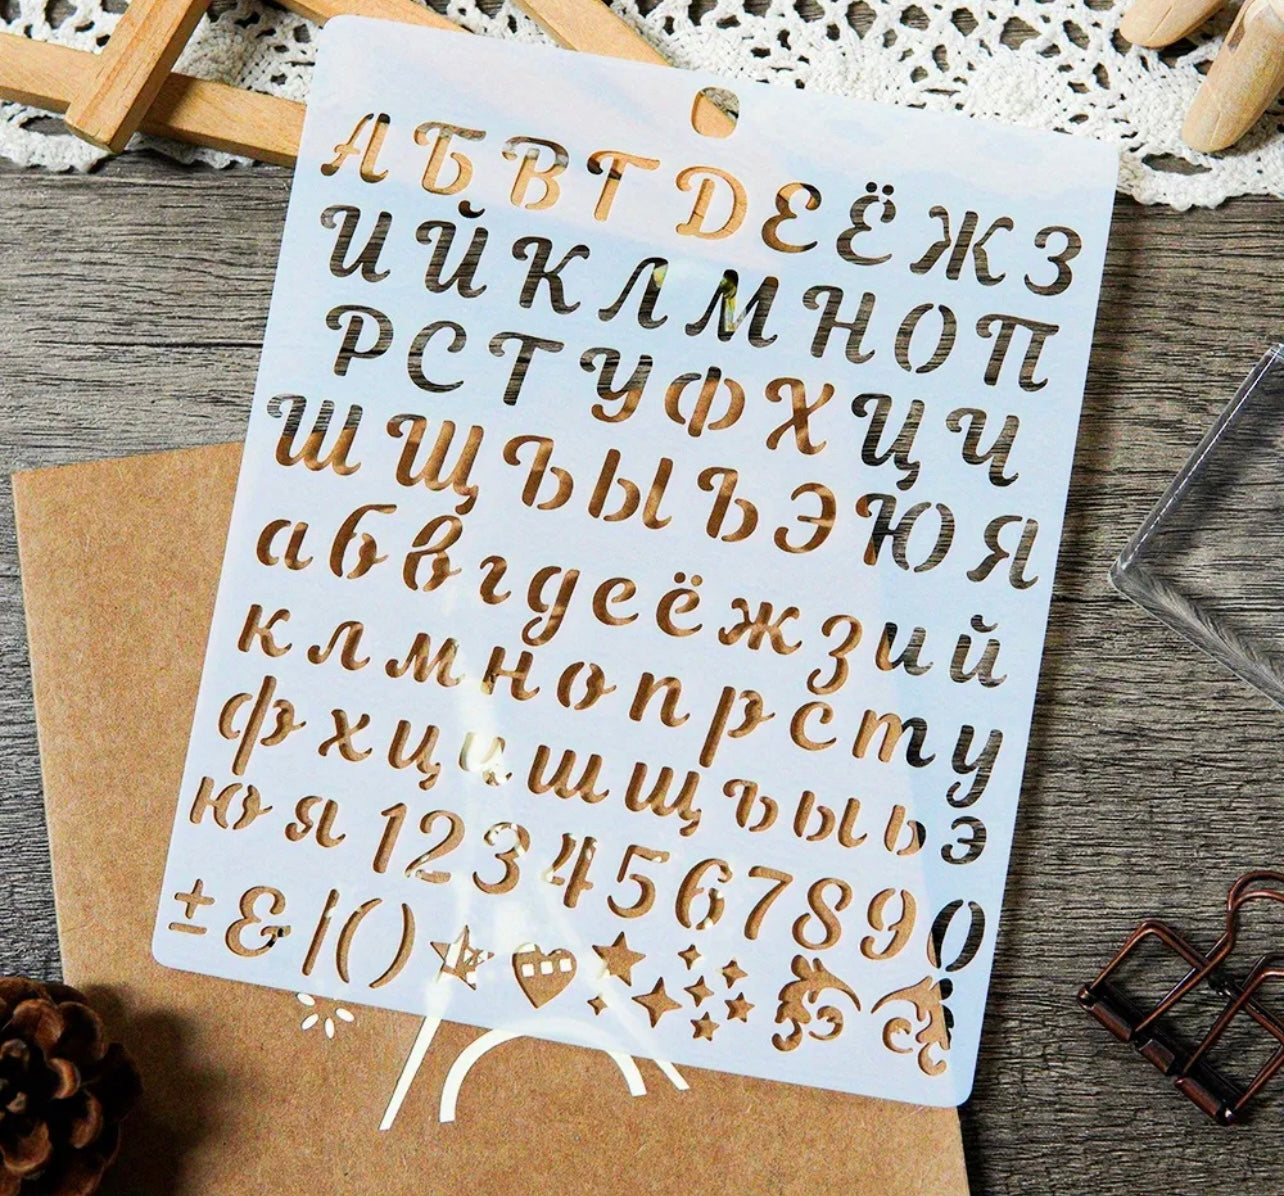 АБВГДЕЁЖЗ
ИЙКЛМНОП
РСТУФХЦЧ
ШЩЪЫЬЭЮЯ
абвгдеёжзий
клмнопрсту
фхцчшщъыьэ
юя1234567890
±&|()